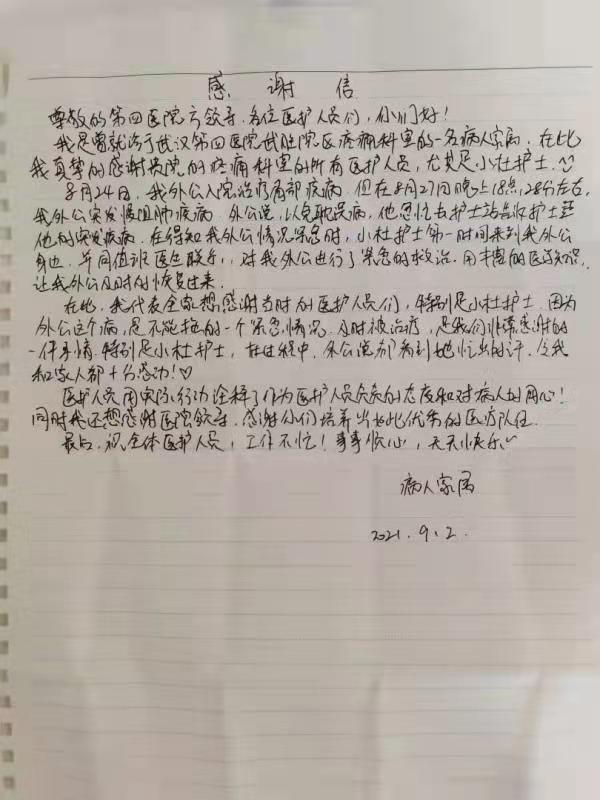 感谢信
尊敬的第四医院方领导、各位医护人员们，你们好！
我是曾就诊于武汉第四医院武胜院区疼痛科室的一名病人家属，在此
我真挚的感谢贵院的疼痛科室的所有医护人员，尤其是小杜护士.
8月24日，我外公入院治疗肩部疾病 但在8月27日晚上18点28分左右，
我外公突发慢阻肺疾病. 外公说，以免耽误病，他急忙去护士站告诉护士
他的突发疾病. 在得知我外公情况紧急时，小杜护士第一时间来到我外公
身边，并同值班医生联系，对我外公进行了紧急的救治. 用丰富的医学知识，
让我外公及时的恢复过来.
在此，我代表全家想感谢当时的医护人员们，特别是小杜护士. 因为
外公这个病，是不能拖的一个紧急情况. 及时被治疗，是我们非常感谢的
一件事情. 特别是小杜护士，在过程中. 外公说都看到她忙出的汗. 令我
和家人都十分感动！♡
医护人员用实际行动诠释了作为医护人员负责的态度和对病人的用心！
同时我还想感谢医院领导. 感谢你们培养出如此优秀的医疗队伍.
最后，祝全体医护人员，工作不忙！事事顺心，天天快乐～
病人家属
2021.9.2